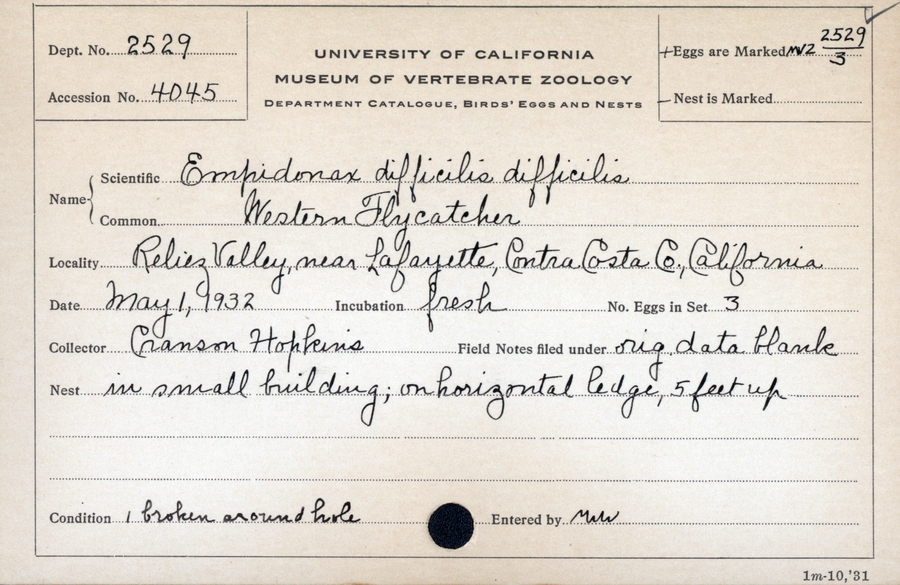 Dept. No. 2529
Accession No. 4045
UNIVERSITY OF CALIFORNIA
MUSEUM OF VERTEBRATE ZOOLOGY
DEPARTMENT CATALOGUE, BIRDS' EGGS AND NESTS
+Eggs are Marked MVZ 2529/3
– Nest is Marked
Name { Scientific Empidonax difficilis difficilis
Common Western Flycatcher
Locality Reliez Valley, near Lafayette, Contra Costa Co., California
Date May 1, 1932 Incubation fresh No. Eggs in Set 3
Collector Cranson Hopkins Field Notes filed under orig. data blank
Nest in small building; on horizontal ledge, 5 feet up
Condition 1 broken around hole Entered by
1m-10,'31